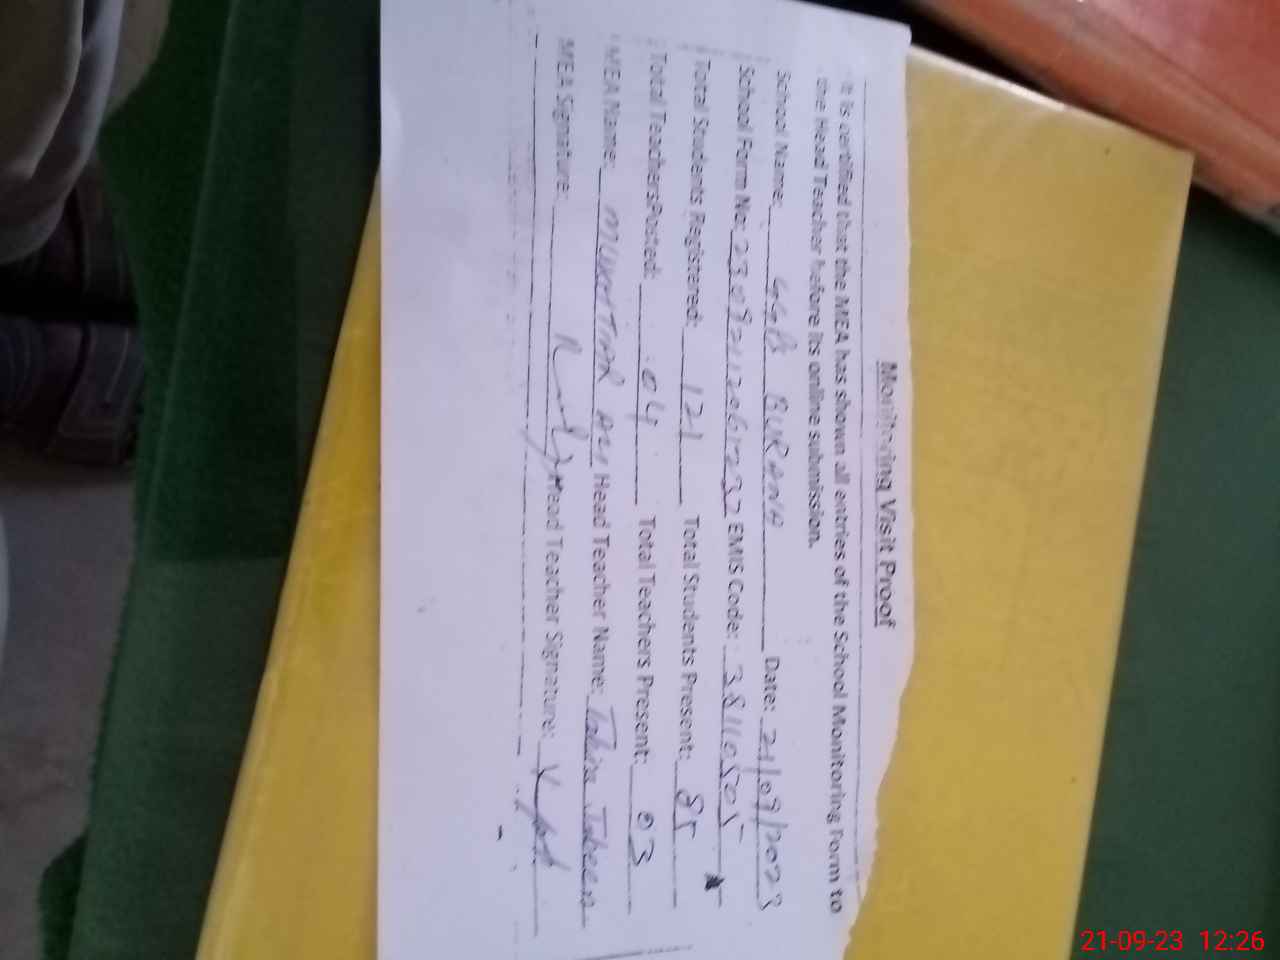 Monitoring Visit Proof
It is certified that the MEA has shown all entries of the School Monitoring Form to
the Head Teacher before its online submission.
School Name: BURANA Date: 21/09/2023
School Form No: EMIS Code: 38110505
Total Students Registered: 121 Total Students Present: 85
Total TeachersPosted: 04 Total Teachers Present: 03
MEA Name: MUKHTIAR ALI Head Teacher Name: Tahira Jabeen
MEA Signature: Head Teacher Signature:
21-09-23 12:26